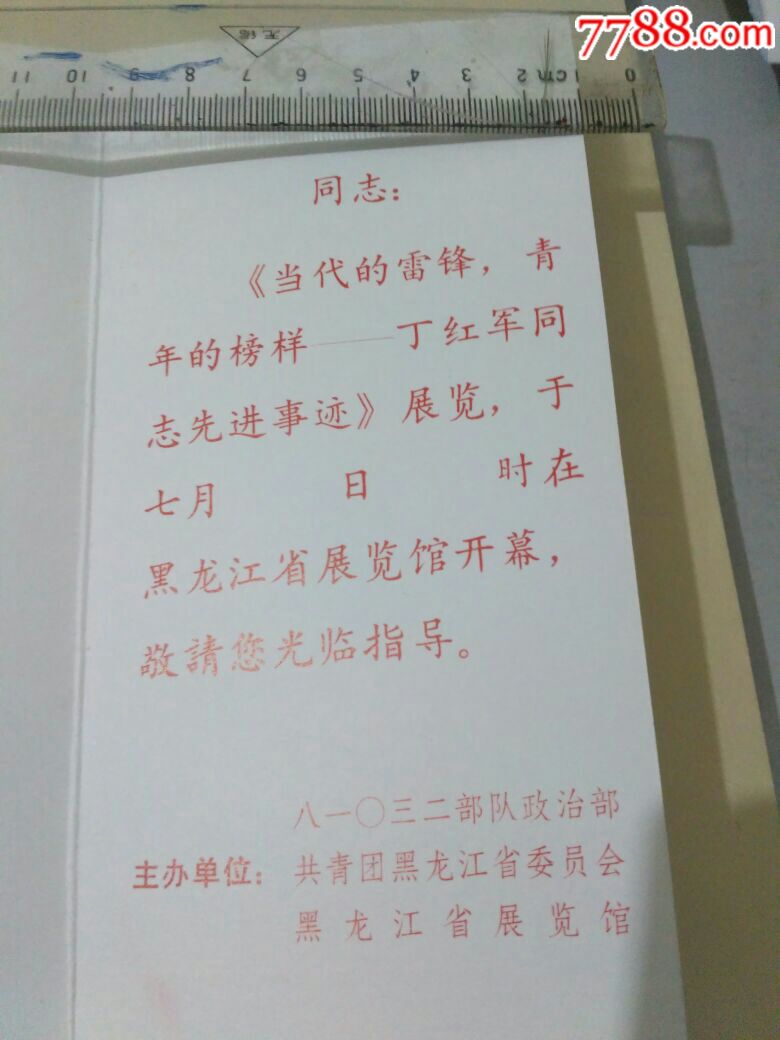 7788.com
无锡
11 10 9 8 7 6 5 4 3 2 1cm 0
同志：
《当代的雷锋，青
年的榜样——丁红军同
志先进事迹》展览，于
七月 日 时在
黑龙江省展览馆开幕，
敬請您光临指导。
八一〇三二部队政治部
主办单位：共青团黑龙江省委员会
黑龙江省展览馆